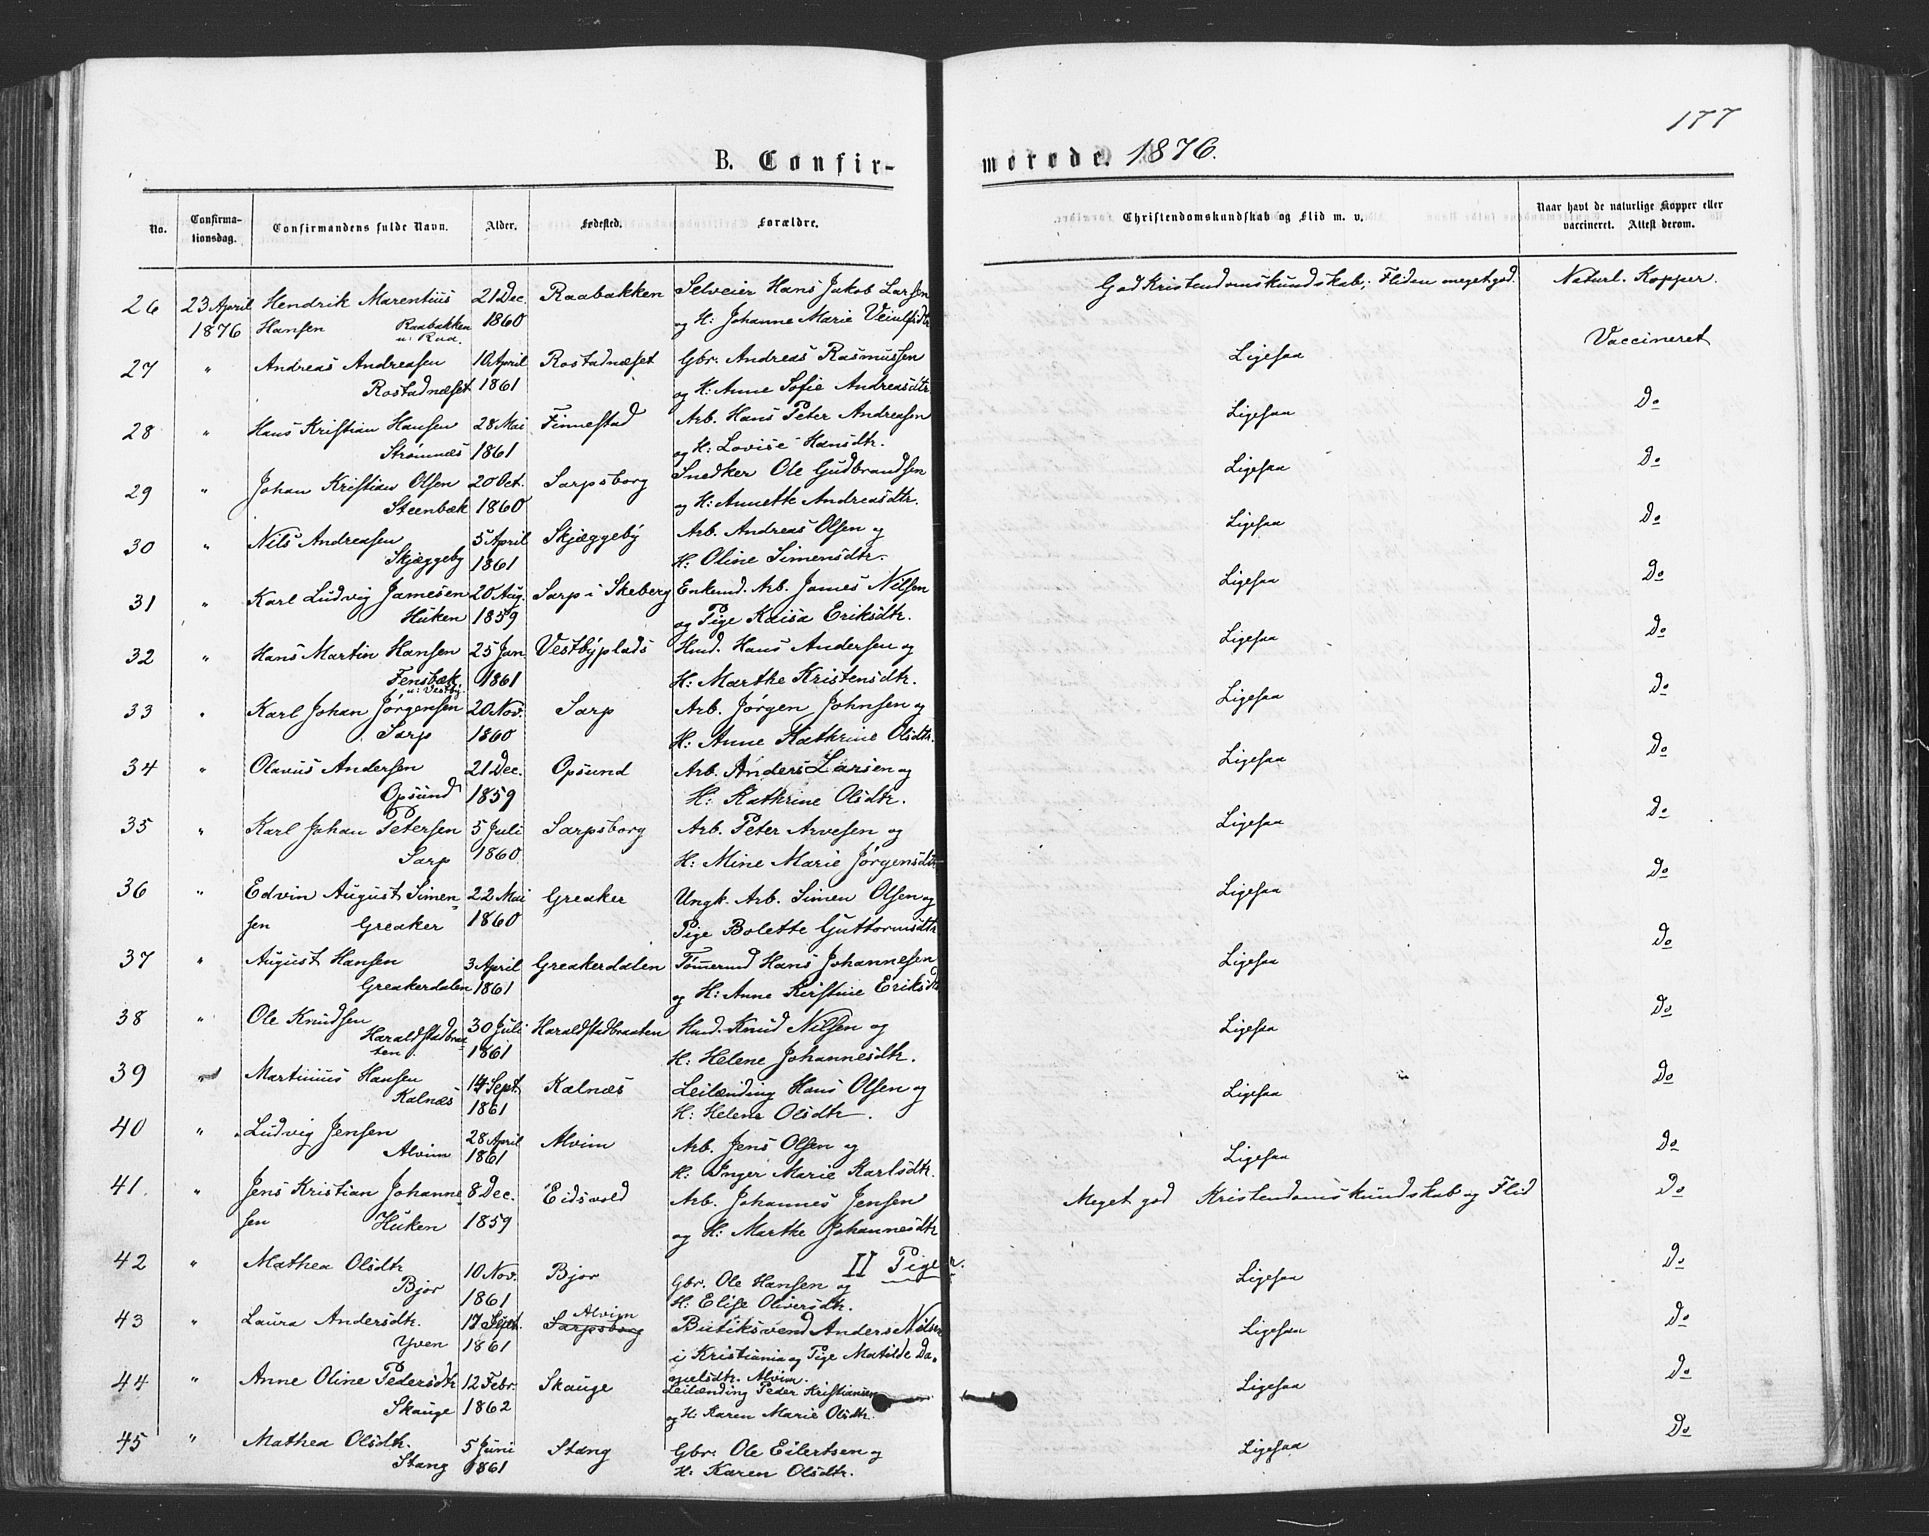 177
B. Confir-
merede. 1876.
No.
Confirma-
tionsdag.
Confirmandens fulde Navn.
Alder.
Fødested.
Forældre.
Christendomskundskab og Flid m. v.
Naar havt de naturlige Kopper eller
vaccineret. Attest derom.
26 23 April Hendrik Marentius 21 Dec. Raabakken Selveier Hans Jakob Larsen God Kristendomskundskab; Fliden meget god. Naturl. Kopper.
1876 Hansen Raabakken 1860 og H: Johanne Marie
u: Raa.
27 " Andreas Andreasen 10 April Rostadnæset Gbr. Andreas Rasmussen Ligesaa Vaccineret
Rostadnæset 1861 og H: Anne Sofie Andreasdtr.
28 " Hans Kristian Hansen 28 Mai Finnestad Arb. Hans Peter Andreasen Ligesaa Do
Strømnæs 1861 og H: Lovise Hansdtr.
29 " Johan Kristian Olsen 20 Oct. Sarpsborg Snedker Ole Gudbrandsen Ligesaa Do
Steenbæk 1860 og H: Annette Andreasdtr.
30 " Nils Andreasen 5 April Skjæggeby Arb. Andreas Olsen og Ligesaa Do
Skjæggeby 1861 H: Oline Simensdtr.
31 " Karl Ludvig Jamesen 20 Aug. Sarp i Skeberg Enkemd. Arb. James Nilsen Ligesaa Do
Huken 1859 og Pige Kaisa Eriksdtr.
32 " Hans Martin Hansen 25 Jan. Vestbyplads Husd. Hans Andersen og Ligesaa Do
Fensbæk 1861 H: Marthe Kristensdtr.
u: Vestby.
33 " Karl Johan Jørgensen 20 Nov. Sarp Arb. Jørgen Johnsen og Ligesaa Do
Sarp 1860 H: Anne Kathrine Olsdtr.
34 " Olavus Andersen 21 Dec. Opsund Arb. Anders Larsen og Ligesaa Do
Opsund 1859 H: Kathrine Olsdtr.
35 " Karl Johan Petersen 5 Juli Sarpsborg Arb. Peter Arvesen og Ligesaa Do
Sarp 1860 H: Mine Marie Jørgensdtr
36 " Edvin August Simen= 22 Mai Greaker Ungk. Arb. Simen Olsen og Ligesaa Do
sen Greaker 1860 Pige Bolette Guttormsdtr
37 " August Hansen 3 April Greakerdalen Tømermd Hans Johannesen Ligesaa Do
Greakerdalen 1861 og H: Anne Kirstine Eriksdtr
38 " Ole Knudsen 30 Juli Haraldstadbraaten Husd. Knud Nilsen og Ligesaa Do
Haraldstadbraa= 1861 H: Helene Johannesdtr.
ten
39 " Martinius Hansen 14 Sept. Kalnæs Leilænding Hans Olsen og Ligesaa Do
Kalnæs 1861 H: Helene Olsdtr.
40 " Ludvig Jensen 28 April Alvim Arb. Jens Olsen og Ligesaa Do
Alvim 1861 H: Inger Marie Karlsdtr.
41. " Jens Kristian Johanne= 8 Dec. Eidsvold Arb. Johannes Jensen Meget god Kristendomskundskab og Flid Do
sen Huken 1859 og H: Marthe Johannesdtr
II Piger.
42 " Mathea Olsdtr 10 Nov. Bjor Gbr. Ole Hansen og Ligesaa Do
Bjor 1861 H: Elise Oliversdtr.
43 " Laura Andersdtr. 17 Sept. Alvim Sarpsborg Butiksvend Anders Nilsen Ligesaa Do
Yven 1861 i Kristiania og Pige Matilde Da=
nielsdtr. Alvim.
44 " Anne Oline Pedersdtr 12 Febr. Skauge Leilænding Peder Kristiansen Ligesaa Do
Skauge 1862 og H: Karen Marie Olsdtr.
45 " Mathea Olsdtr. 5 Juni Stang Gbr. Ole Eilertsen og Ligesaa Do
Stang 1861 H: Karen Olsdtr.